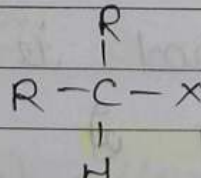 R
R - C - X
H